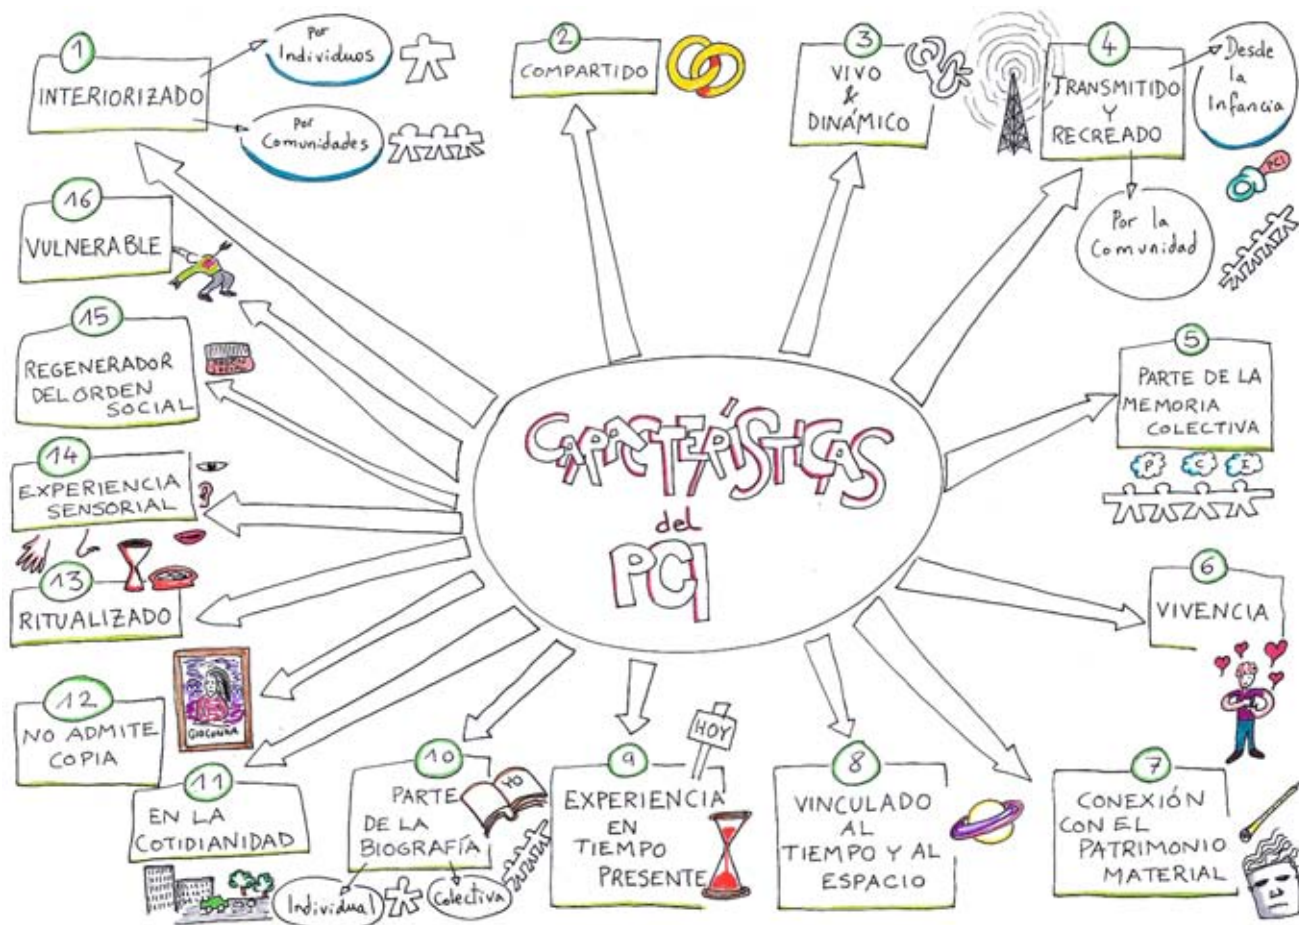 CARACTERÍSTICAS
del
PCI
1
INTERIORIZADO
Por
Individuos
Por
Comunidades
2
COMPARTIDO
3
VIVO
&
DINÁMICO
4
TRANSMITIDO
Y
RECREADO
Desde
la
Infancia
PCI
Por la
Comunidad
5
PARTE DE LA
MEMORIA
COLECTIVA
P C I
6
VIVENCIA
7
CONEXIÓN
CON EL
PATRIMONIO
MATERIAL
8
VINCULADO
AL
TIEMPO Y AL
ESPACIO
9
HOY
EXPERIENCIA
EN
TIEMPO
PRESENTE
10
PARTE
DE LA
BIOGRAFÍA
YO
Individual
Colectiva
11
EN LA
COTIDIANIDAD
12
NO ADMITE
COPIA
GIOCONDA
13
RITUALIZADO
14
EXPERIENCIA
SENSORIAL
15
REGENERADOR
DEL ORDEN
SOCIAL
16
VULNERABLE